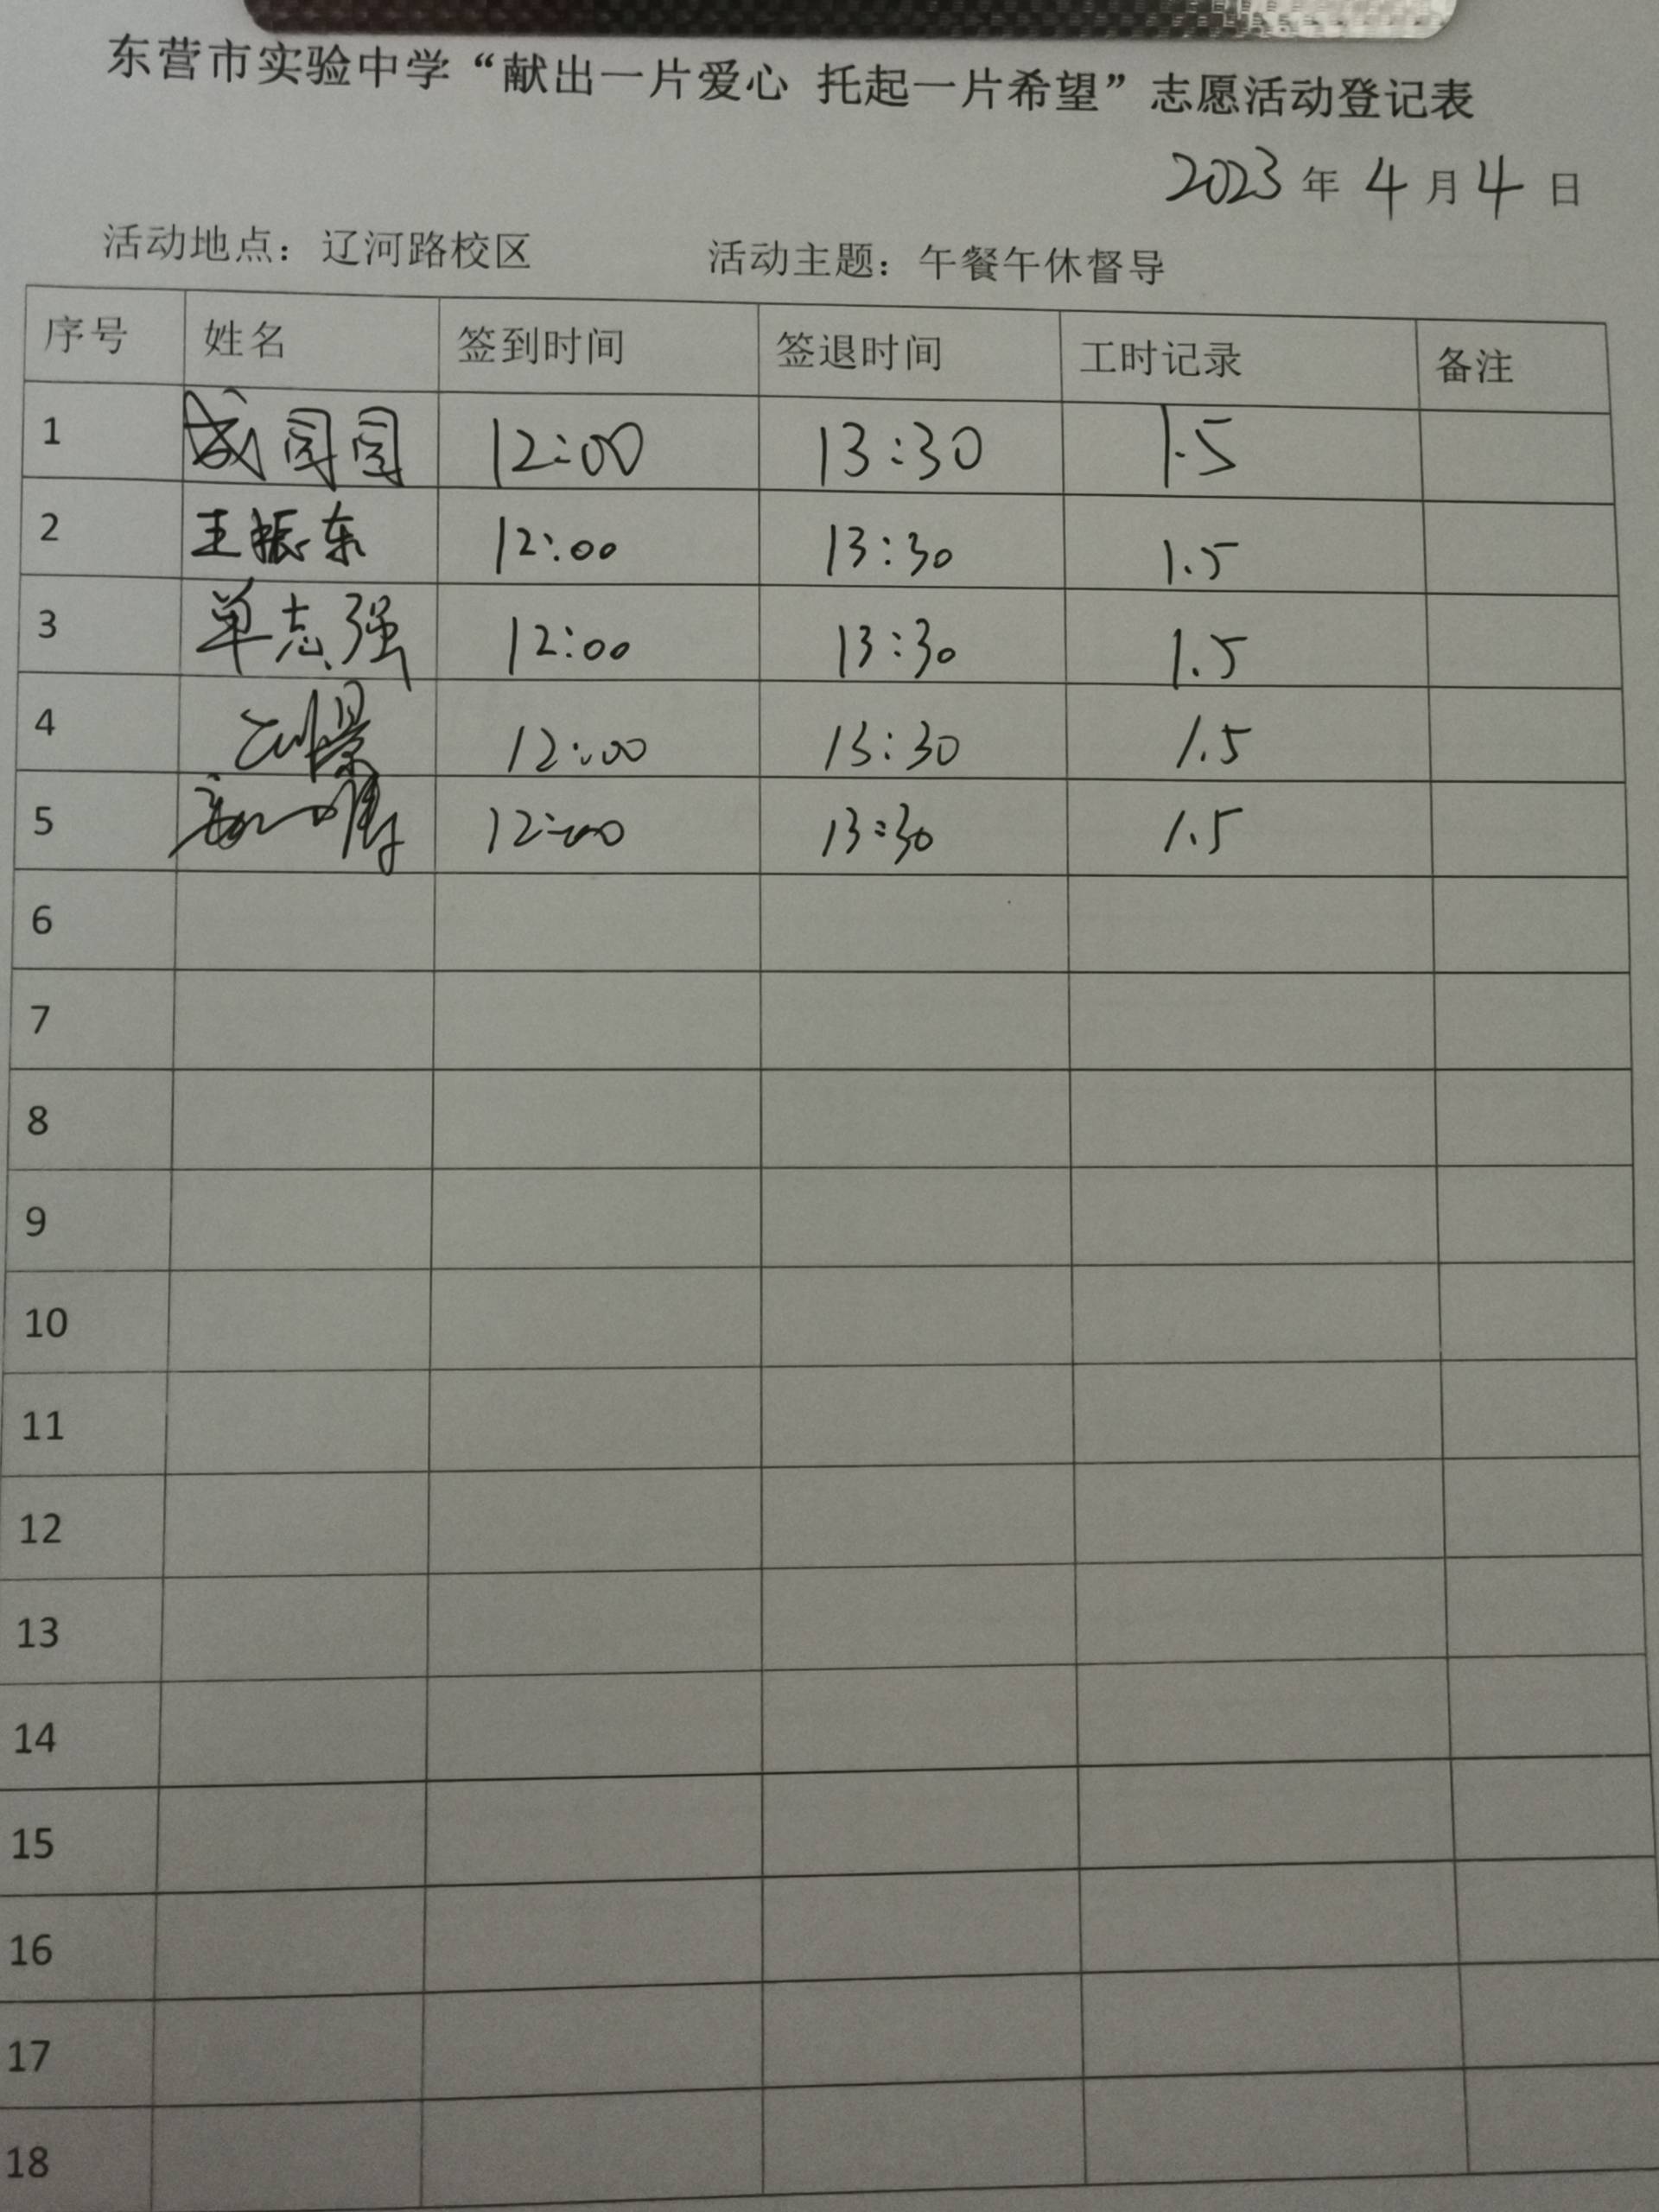 东营市实验中学“献出一片爱心 托起一片希望”志愿活动登记表
2023 年 4 月 4 日
活动地点：辽河路校区 活动主题：午餐午休督导
序号 姓名 签到时间 签退时间 工时记录 备注
1 12:00 13:30 1.5
2 王振东 12:00 13:30 1.5
3 单志强 12:00 13:30 1.5
4 12:00 13:30 1.5
5 12:00 13:30 1.5
6
7
8
9
10
11
12
13
14
15
16
17
18